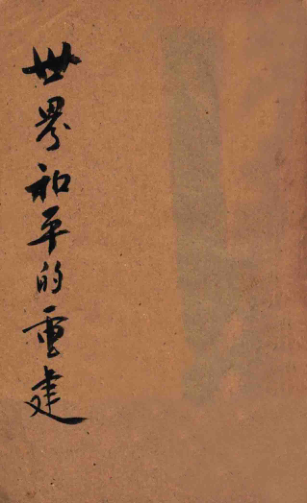 世界和平的重建